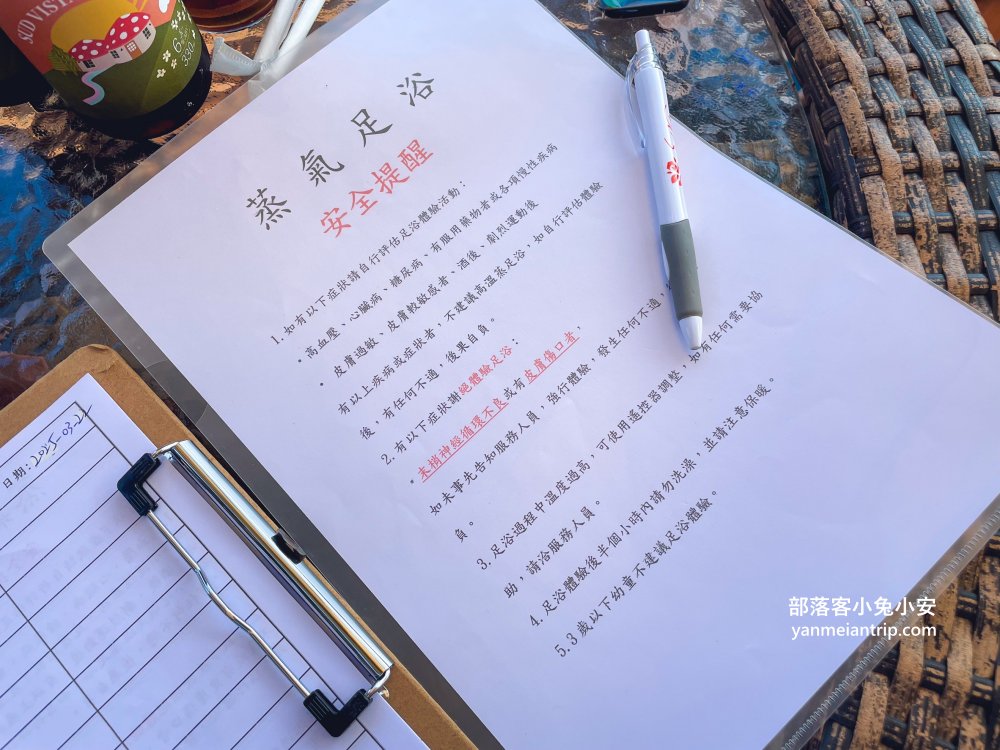 蒸氣足浴
安全提醒
1. 如有以下症狀請自行評估足浴體驗活動：
• 高血壓、心臟病、糖尿病、有服用藥物者或各項慢性疾病
• 皮膚過敏、皮膚較敏感者、酒後、劇烈運動後
有以上疾病或症狀者，不建議高溫蒸足浴，如自行評估體驗
後，有任何不適，後果自負。
2. 有以下症狀謝絕體驗足浴：
• 末梢神經循環不良或有皮膚傷口者，
如未事先告知服務人員，強行體驗，發生任何不適，
負。
3. 足浴過程中溫度過高，可使用遙控器調整，如有任何需要協
助，請洽服務人員。
4. 足浴體驗後半個小時內請勿洗澡，並請注意保暖。
5. 3 歲以下幼童不建議足浴體驗。
日期：2025-03-2
330
部落客小兔小安
yanmeiantrip.com